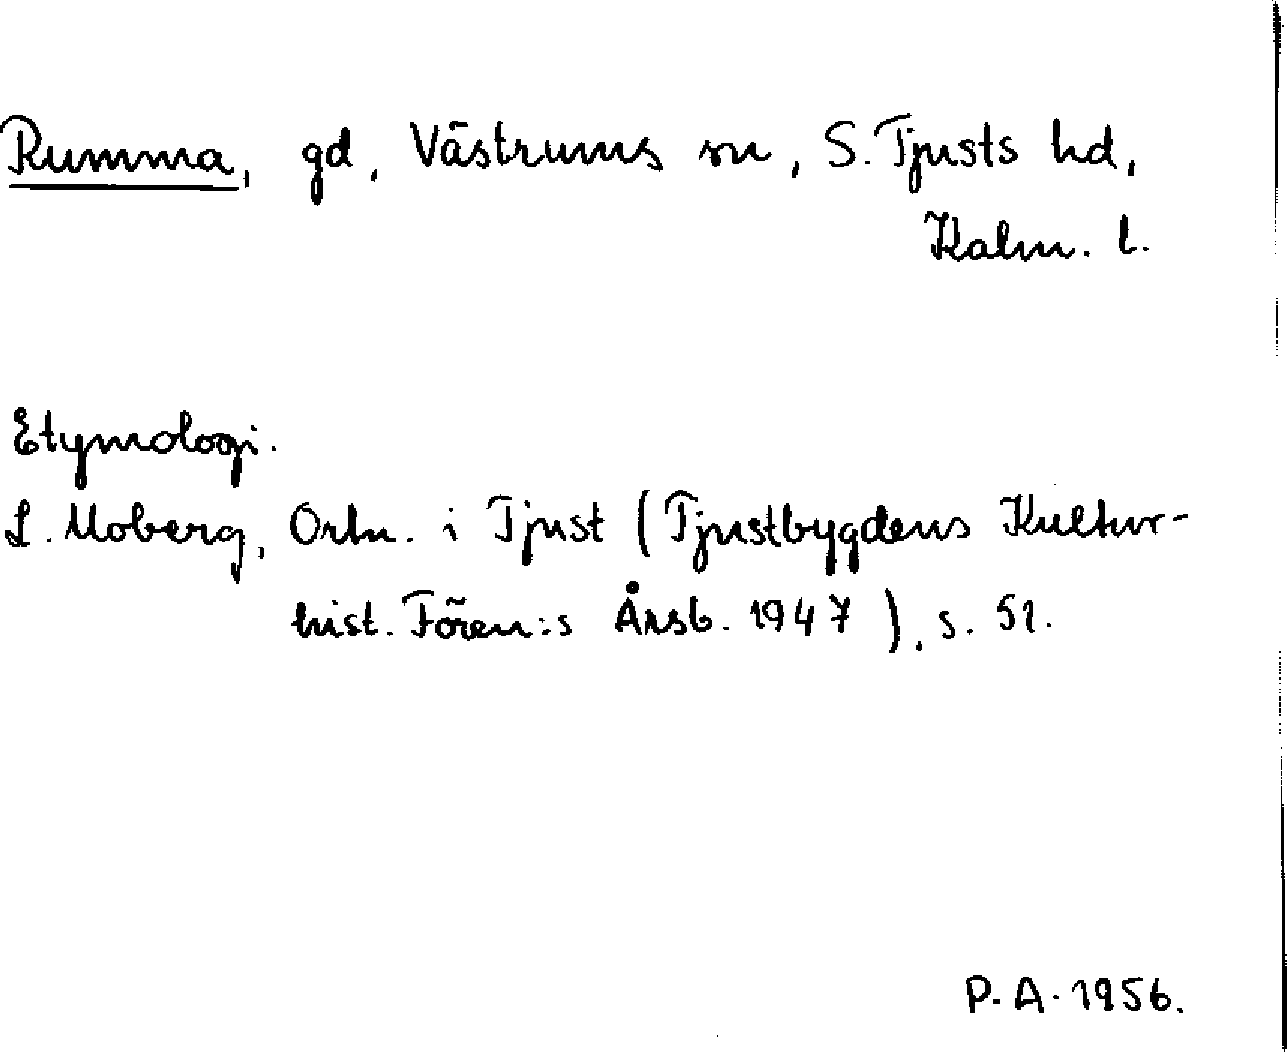 Rumma, gd, Västrums sn, S. Tjusts hd,
Kalm. l.
Etymologi.
L. Moberg, Ortn. i Tjust (Tjustbygdens Kultur-
hist. Fören:s Årsb. 1947), s. 51.
P. A. 1956.